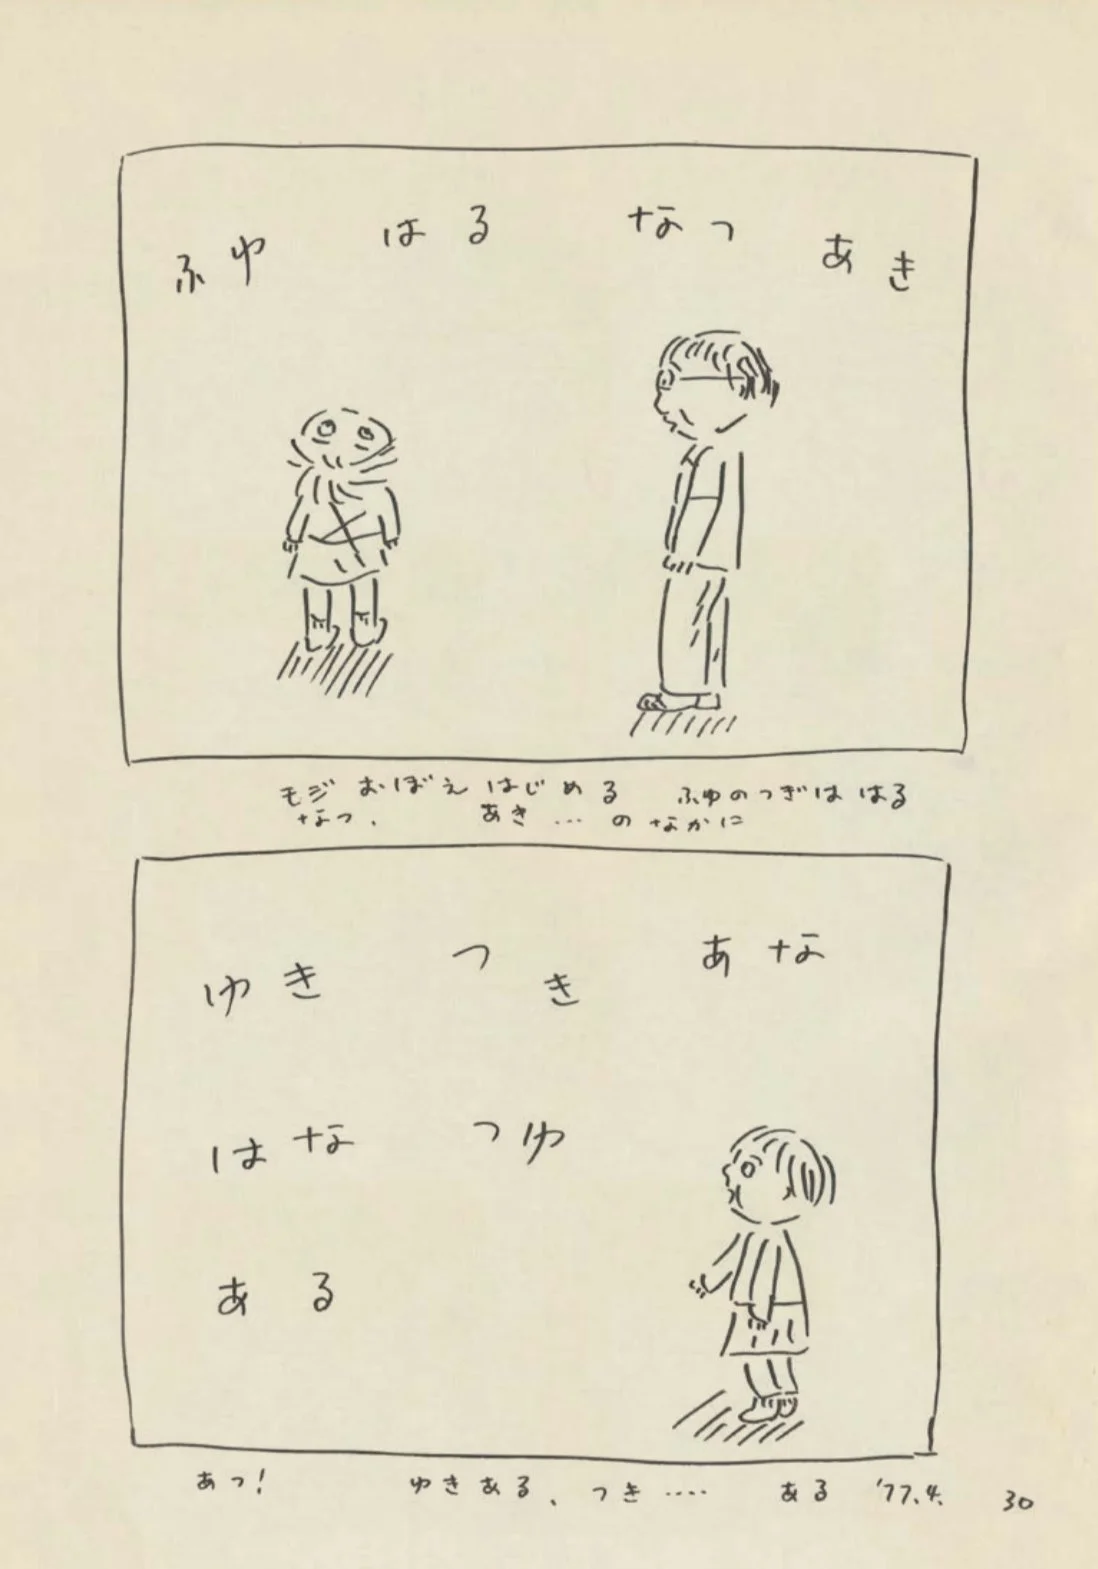 ふゆ はる なつ あき
モジ おぼえ はじめる ふゆのつぎは はる
なつ、 あき … の なかに
ゆき つき あな
はな つゆ
ある
あっ! ゆきある、つき‥‥ ある '77.4. 30